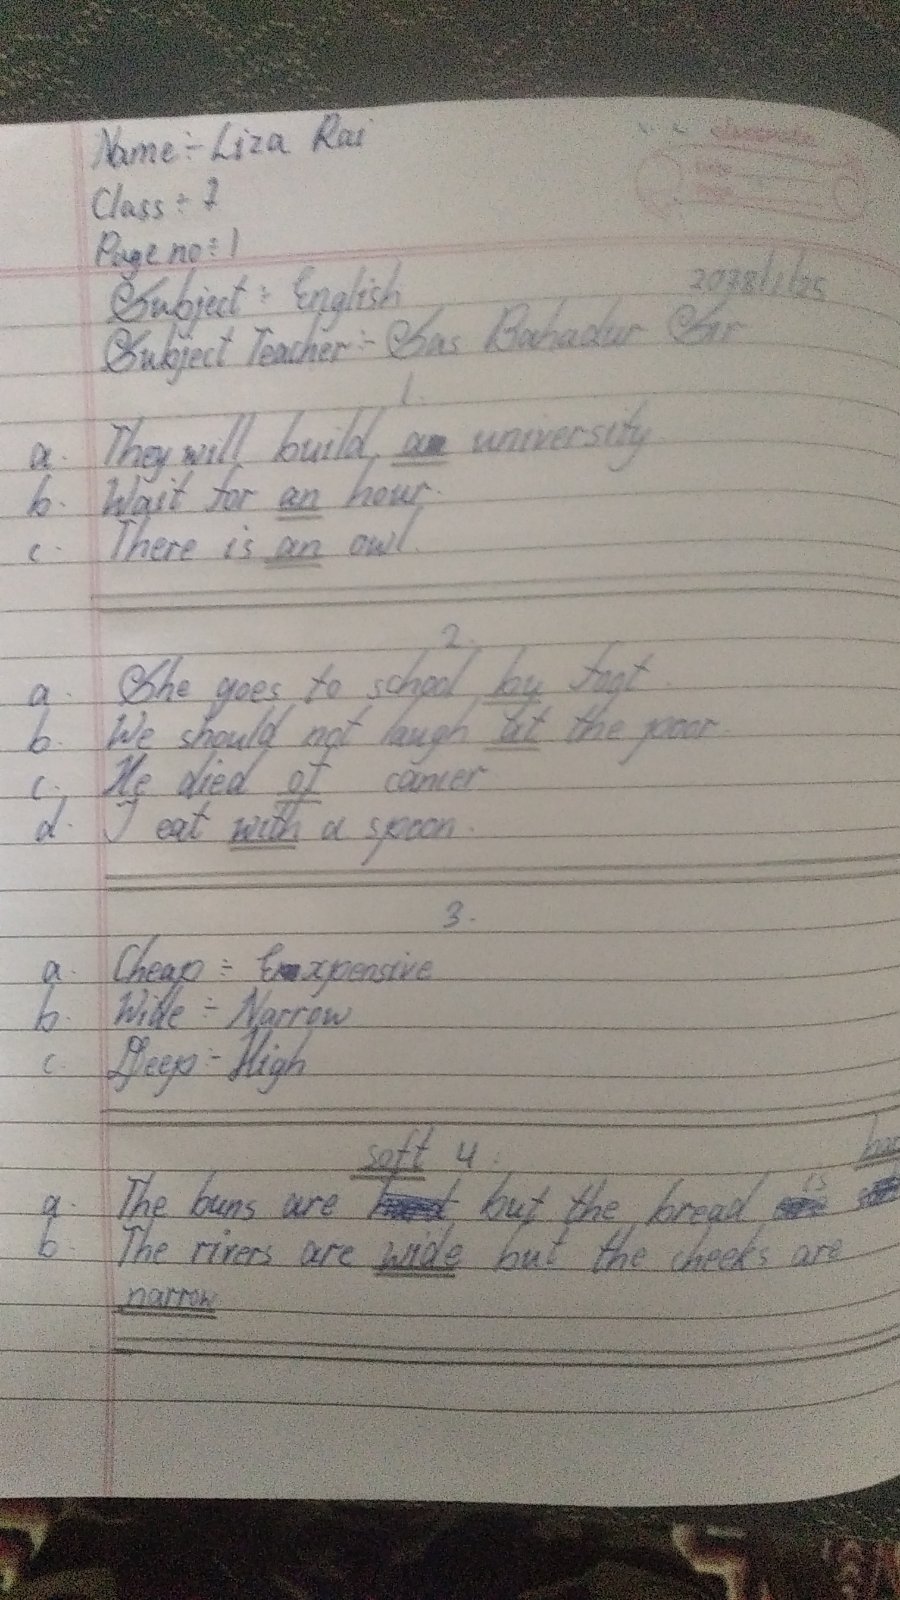 Name :- Liza Rai
Class :- 7
Page no :- 1
Subject :- English 2078/1/25
Subject Teacher :- Sas Bahadur Sir
1.
a. They will build a university
b. Wait for an hour.
c. There is an owl.
2.
a. She goes to school by foot
b. We should not laugh at the poor
c. He died of cancer
d. I eat with a spoon.
3.
a. Cheap :- Expensive
b. Wide :- Narrow
c. Deep :- High
4.
a. The buns are soft but the bread is
b. The rivers are wide but the cheeks are
narrow